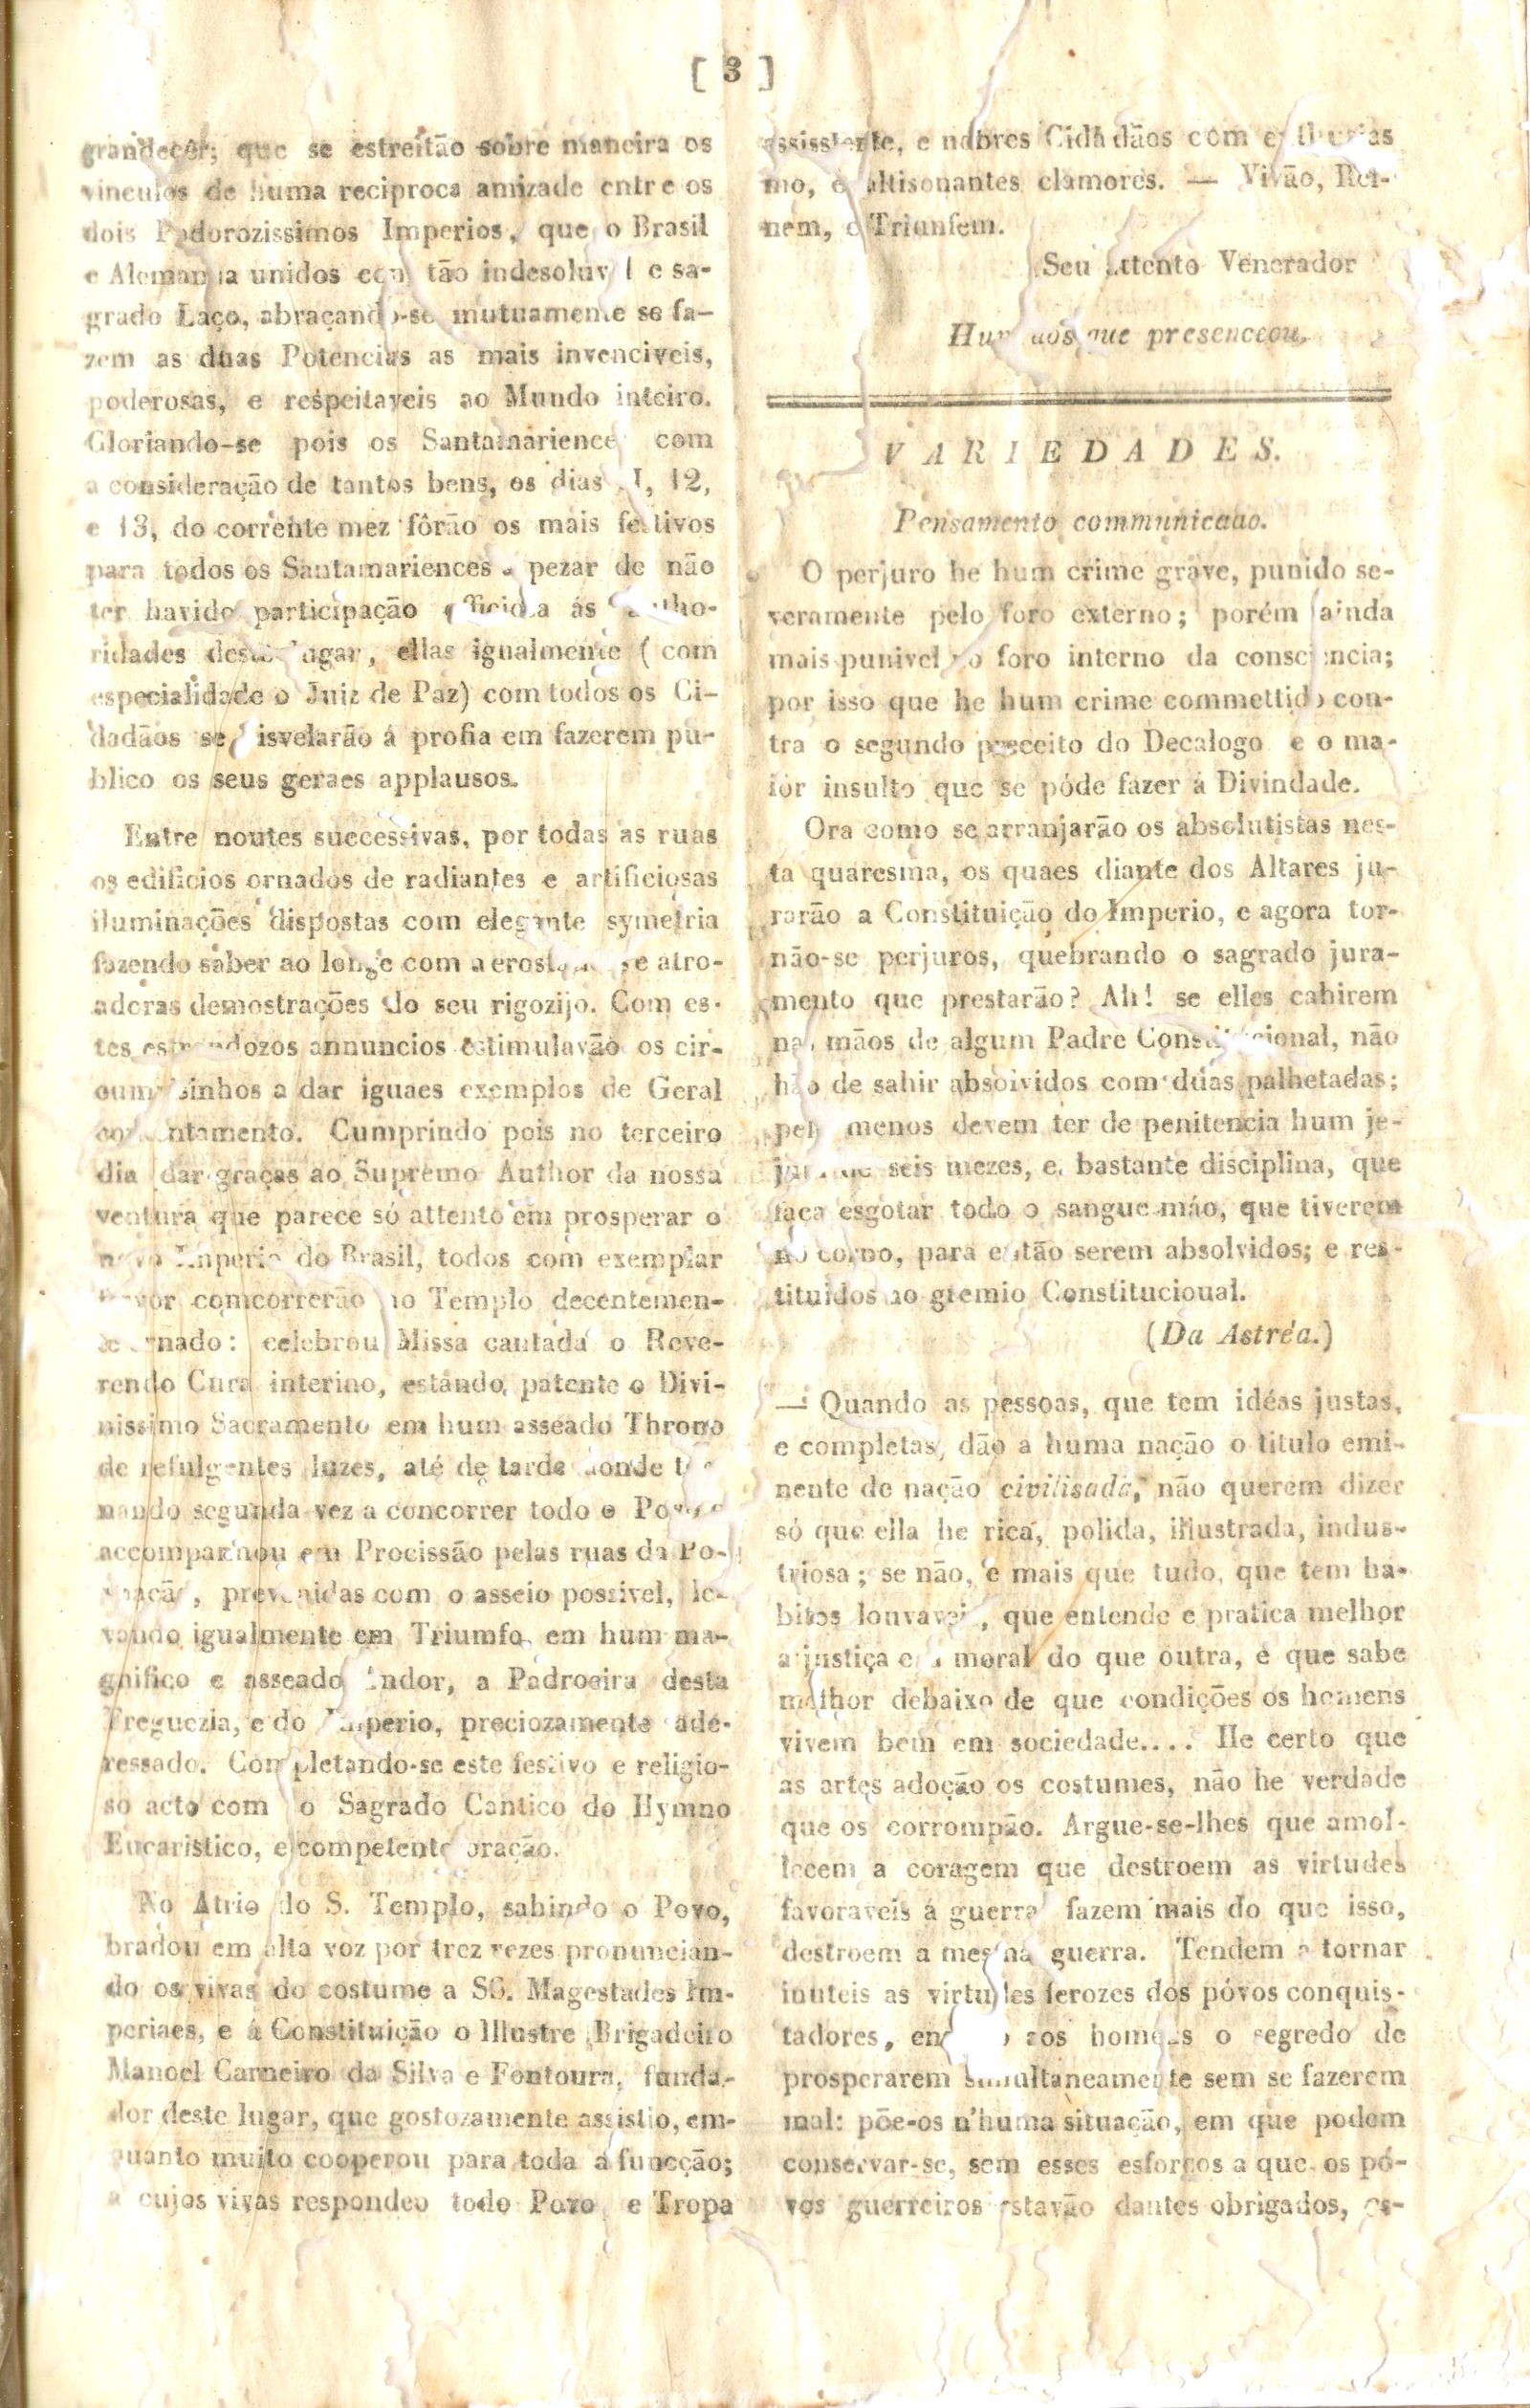 [ 3 ]
grandecer; que se estreitão sobre maneira os
vinculos de huma reciproca amizade entre os
dois Podorozissimos Imperios, que o Brasil
e Alemanha unidos com tão indesoluvel e sa-
grado Laço, abraçando-se mutuamente se fa-
zem as duas Potencias as mais invenciveis,
poderosas, e respeitaveis ao Mundo inteiro.
Gloriando-se pois os Santamarience com
a consideração de tantos bens, os dias 11, 12,
e 13, do corrente mez fôrão os mais festivos
para todos os Santamariences pezar de não
ter havido participação ás
ridades deste lugar, ellas igualmente ( com
especialidade o Juiz de Paz) com todos os Ci-
dadãos se disvelarão á profia em fazerem pu-
blico os seus geraes applausos.
Entre noutes successivas, por todas as ruas
os edificios ornados de radiantes e artificiosas
iluminações dispostas com elegante symetria
fazendo saber ao longe com e atro-
adoras demostrações do seu rigozijo. Com es-
tes estrondozos annuncios estimulavão os cir-
cumvisinhos a dar iguaes exemplos de Geral
contentamento. Cumprindo pois no terceiro
dia dar graças ao Supremo Author da nossa
ventura que parece só attento em prosperar o
novo Imperio do Brasil, todos com exemplar
comcorrerão ao Templo decentemen-
te ornado: celebrou Missa cantada o Reve-
rendo Cura interino, estando patente o Divi-
nissimo Sacramento em hum asseado Throno
de refulgentes luzes, até de tarde aonde tor-
nando segunda vez a concorrer todo o Povo
accompanhou em Procissão pelas ruas da Po-
voação, prevenidas com o asseio possivel, le-
vando igualmente em Triumfo em hum ma-
gnifico e asseado Andor, a Padroeira desta
Freguezia, e do Imperio, preciozamente ade-
ressado. Completando-se este festivo e religio-
so acto com o Sagrado Cantico do Hymno
Eucaristico, e competente oração.
No Atrio do S. Templo, sahindo o Povo,
bradou em alta voz por trez vezes pronuncian-
do os vivas do costume a SS. Magestades Im-
periaes, e á Constituição o Illustre Brigadeiro
Manoel Carneiro da Silva e Fontoura, funda-
dor deste lugar, que gostozamente assistio, em-
quanto muito cooperou para toda a funcção;
a cujos vivas respondeo todo Povo e Tropa
assisstente, e nobres Cidadãos com enthusias
mo, e altisonantes clamores. — Vivão, Rei-
nem, e Triunfem.
Seu attento Venerador
Hum dos que presenceou.
VARIEDADES.
Pensamento communicado.
O perjuro he hum crime grave, punido se-
veramente pelo foro externo; porém ainda
mais punivel no foro interno da consciencia;
por isso que he hum crime commettido con-
tra o segundo preceito do Decalogo e o ma-
ior insulto que se póde fazer á Divindade.
Ora como se arranjarão os absolutistas nes-
ta quaresma, os quaes diante dos Altares ju-
rarão a Constituição do Imperio, e agora tor-
não-se perjuros, quebrando o sagrado jura-
mento que prestarão? Ah! se elles cahirem
nas mãos de algum Padre Constitucional, não
hão de sahir absolvidos com duas palhetadas;
pelo menos devem ter de penitencia hum je-
jum de seis mezes, e bastante disciplina, que
faça esgotar todo o sangue máo, que tiverem
no corpo, para então serem absolvidos; e res-
tituidos ao gremio Constitucioual.
(Da Astréa.)
— Quando as pessoas, que tem idéas justas,
e completas, dão a huma nação o titulo emi-
nente de nação civilisada, não querem dizer
só que ella he rica, polida, illustrada, indus-
triosa; se não, e mais que tudo, que tem ha-
bitos louvaveis, que entende e pratica melhor
a justiça e a moral do que outra, e que sabe
melhor debaixo de que condições os homens
vivem bem em sociedade.... He certo que
as artes adoção os costumes, não he verdade
que os corrompão. Argue-se-lhes que amol-
lecem a coragem que destroem as virtudes
favoraveis á guerra fazem mais do que isso,
destroem a mesma guerra. Tendem a tornar
inuteis as virtudes ferozes dos póvos conquis-
tadores, aos homens o segredo de
prosperarem simultaneamente sem se fazerem
mal: põe-os n'huma situação, em que podem
conservar-se, sem esses esforços a que os pó-
vos guerreiros estavão dantes obrigados, es-